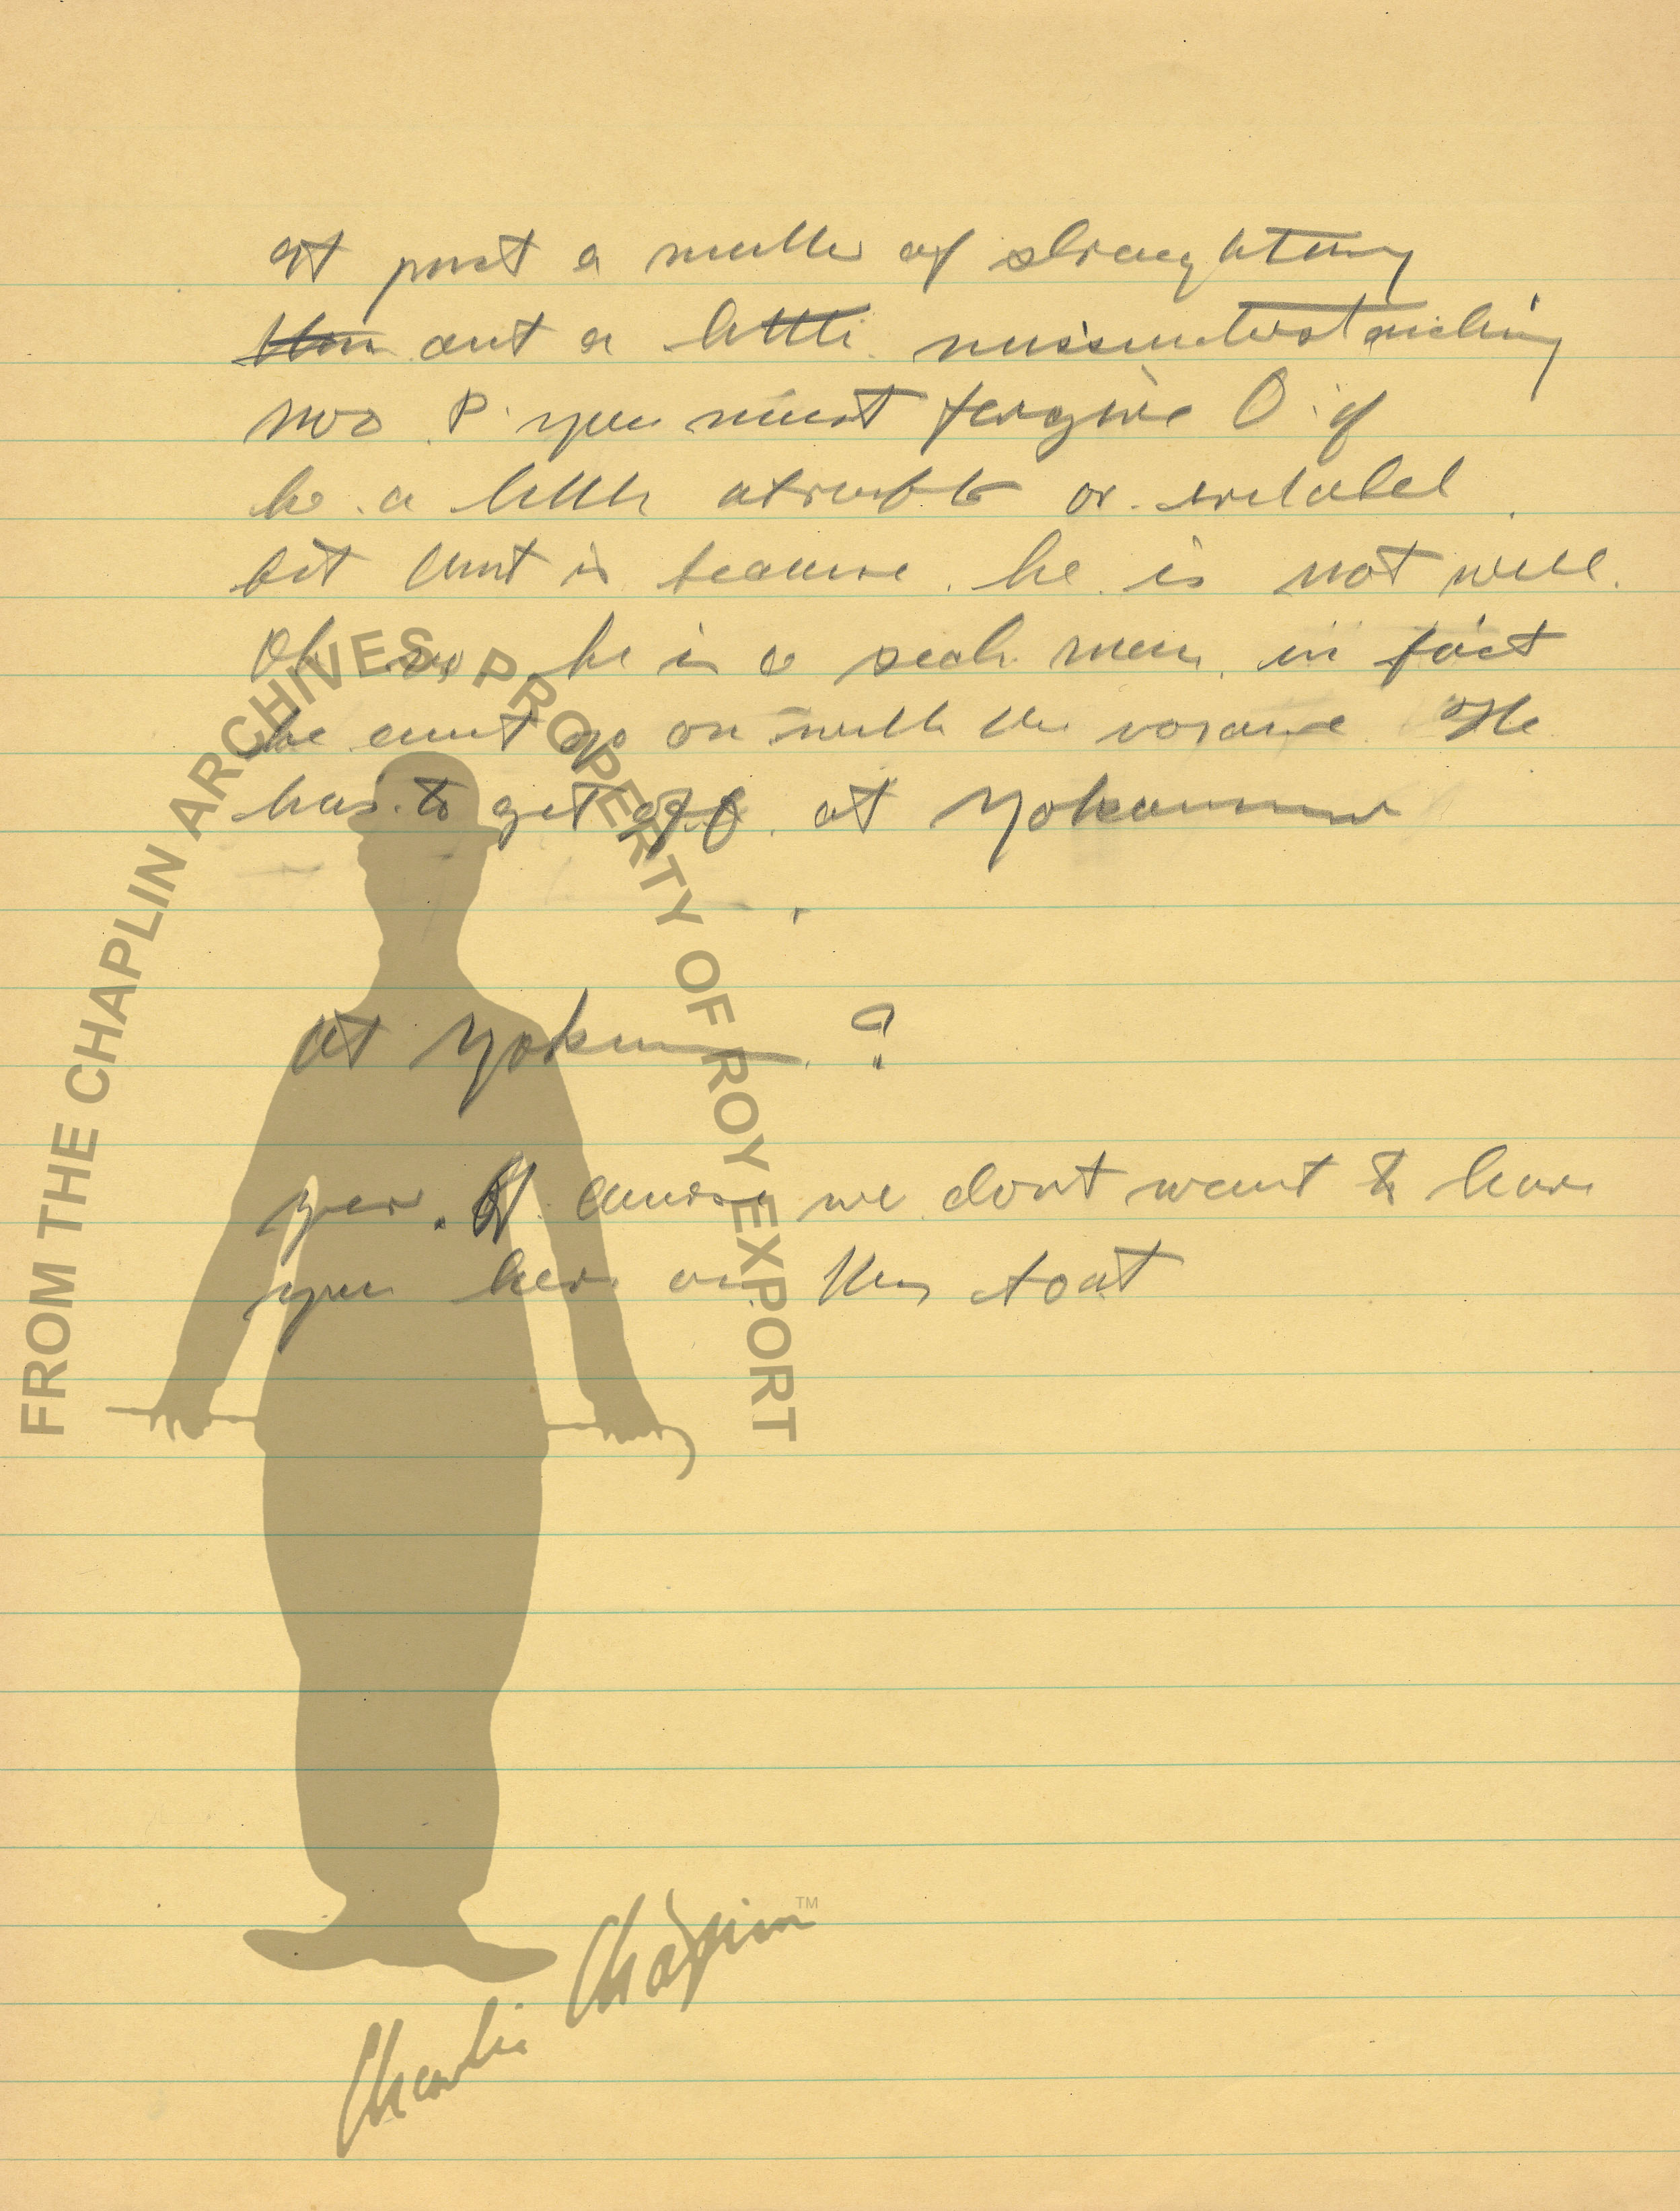 It just a matter of straightening
out a little missunderstanding
Mrs P. you must forgive O if
he a little or
but is because he is not well.
Oh yes, he is a sick man in fact
he cant go on with the voyage He
has to get off at Yokohama
at Yokohama ?
yes. Of course we dont want to have
you here on this boat
FROM THE CHAPLIN ARCHIVES, PROPERTY OF ROY EXPORT
Charlie Chaplin™